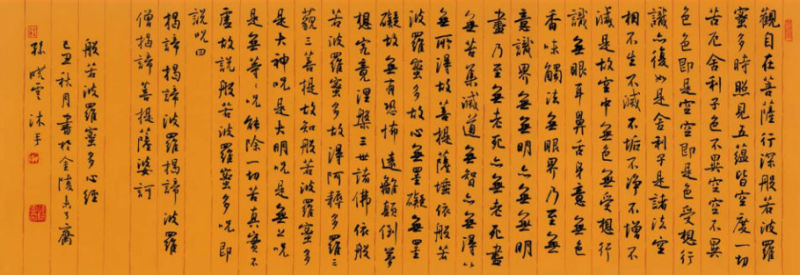 觀自在菩薩行深般若波羅
蜜多時照見五蘊皆空度一切
苦厄舍利子色不異空空不異
色色即是空空即是色受想行
識亦復如是舍利子是諸法空
相不生不滅不垢不淨不增不
減是故空中無色無受想行
識無眼耳鼻舌身意無色
香味觸法無眼界乃至無
意識界無無明亦無無明
盡乃至無老死亦無老死盡
無苦集滅道無智亦無得以
無所得故菩提薩埵依般若
波羅蜜多故心無罣礙無罣
礙故無有恐怖遠離顛倒夢
想究竟涅槃三世諸佛依般
若波羅蜜多故得阿耨多羅三
藐三菩提故知般若波羅蜜多
是大神呪是大明呪是無上呪
是無等等呪能除一切苦真實不
虛故說般若波羅蜜多呪即
說呪曰
揭諦揭諦波羅揭諦波羅
僧揭諦菩提薩婆訶
般若波羅蜜多心經
己丑秋月書於金陵齋
孫曉雲沐手